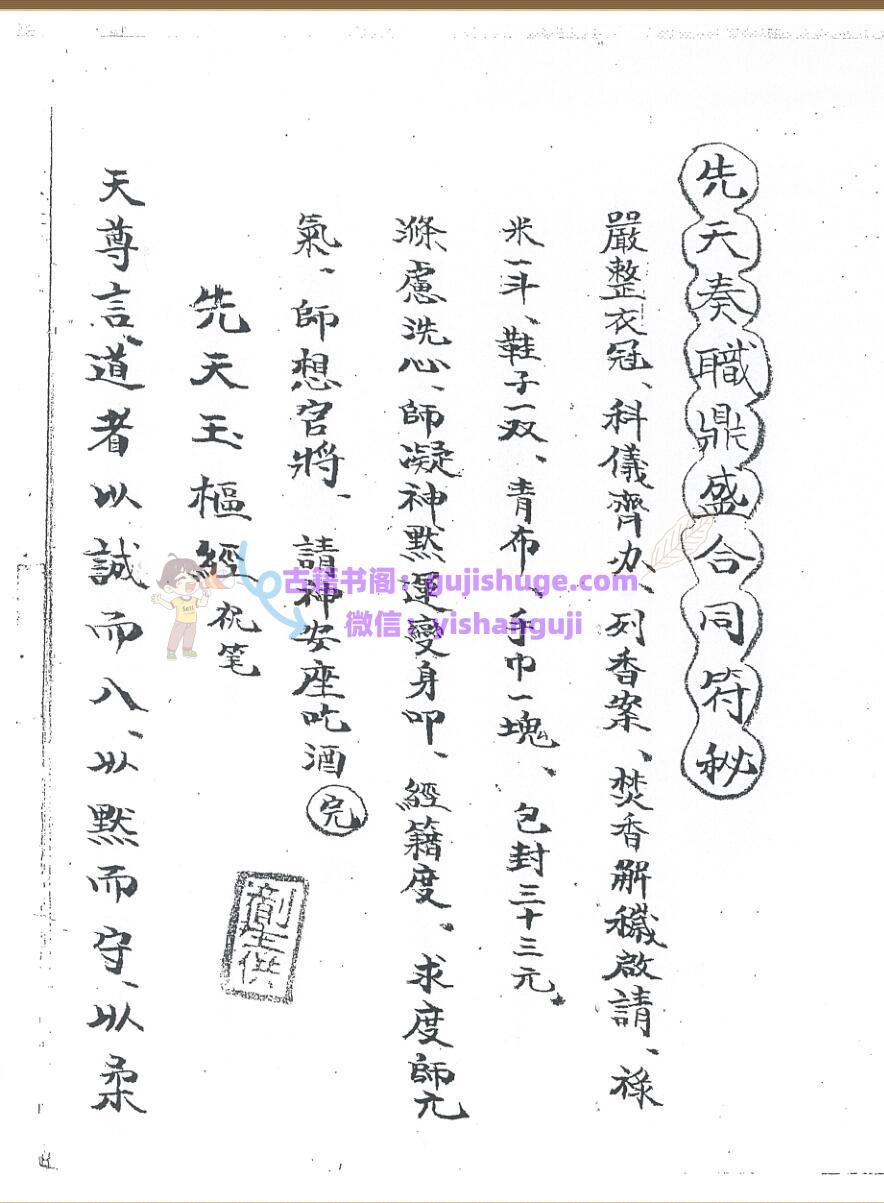 先天奏職鼎盛合同符秘
嚴整衣冠、科儀齊力、列香案、焚香解穢啟請、祿
米一斗、鞋子一双、青布、手巾一塊、包封三十三元、
滌慮洗心、師凝神黙運變身叩、經籍度、求度師元
氣、師想官將、請神安座吃酒完
先天玉樞經祝笔
天尊言、道者以誠而入、以黙而守、以柔
古籍书阁：gujishuge.com
微信：yishanguji